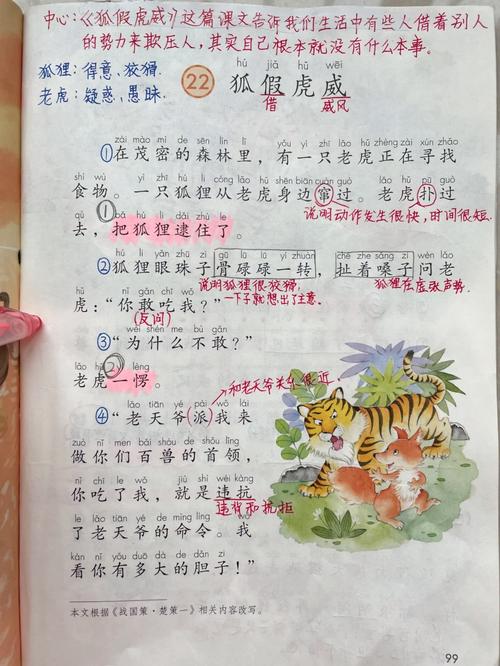 中心:《狐假虎威》这篇课文告诉我们生活中有些人借着别人
的势力来欺压人,其实自己根本就没有什么本事。
狐狸:得意、狡猾
老虎:疑惑、愚昧
hú jiǎ hǔ wēi
22 狐假虎威
借 威风
zài mào mì de sēn lín lǐ yǒu yì zhī lǎo hǔ zhèng zài xún zhǎo
①在茂密的森林里,有一只老虎正在寻找
shí wù yì zhī hú li cóng lǎo hǔ shēn biān cuàn guò lǎo hǔ pū guò
食物。一只狐狸从老虎身边窜过。老虎扑过
说明动作发生很快,时间很短。
①
qù bǎ hú li dǎi zhù le
去,把狐狸逮住了。
hú li yǎn zhū zi gū lù lù yì zhuàn chě zhe sǎng zi wèn lǎo
②狐狸眼珠子骨碌碌一转,扯着嗓子问老
说明狐狸很狡猾,
一下子就想出了主意.
狐狸在虚张声势.
hǔ nǐ gǎn chī wǒ
虎:“你敢吃我?”
(反问)
wèi shén me bù gǎn
③“为什么不敢?”
②
lǎo hǔ yí lèng
老虎一愣。
和老天爷关系很近
lǎo tiān yé pài wǒ lái
④“老天爷(派)我来
zuò nǐ men bǎi shòu de shǒu lǐng
做你们百兽的首领,
nǐ chī le wǒ jiù shì wéi kàng
你吃了我,就是违抗
违背和抗拒
le lǎo tiān yé de mìng lìng wǒ
了老天爷的命令。我
kàn nǐ yǒu duō dà de dǎn zi
看你有多大的胆子!”
本文根据《战国策·楚策一》相关内容改写。
99